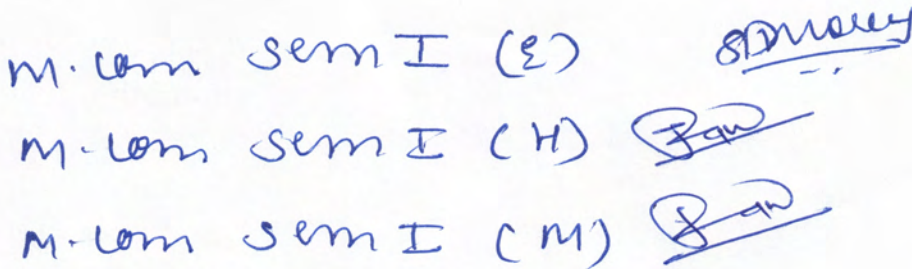 M.com sem I (E)
M.com sem I (H)
M.com sem I (M)